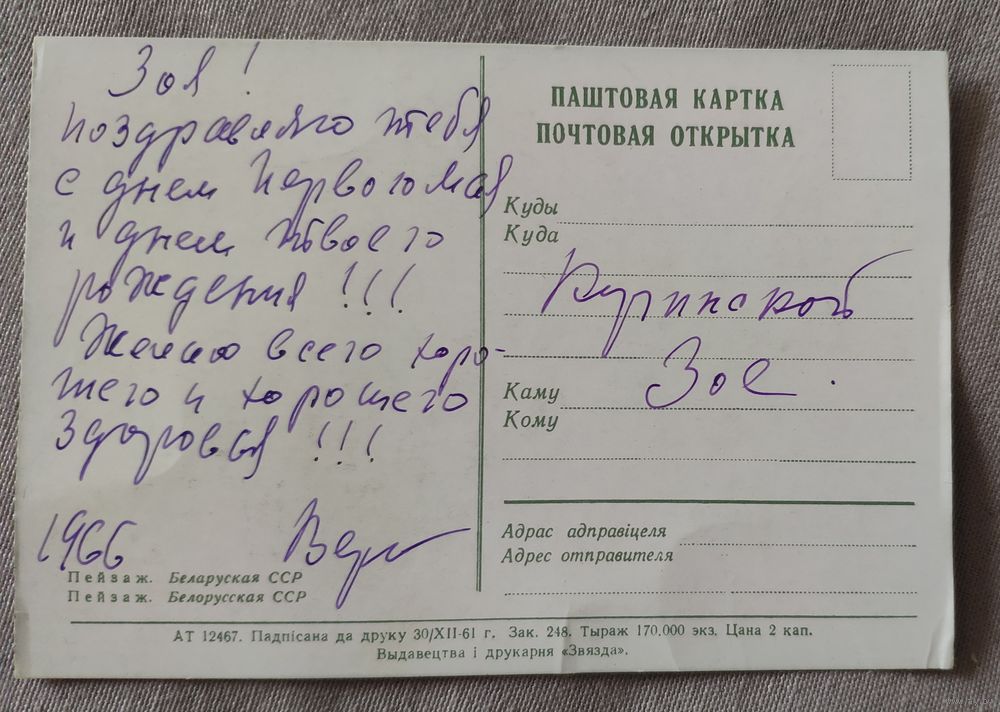 Зоя!
Поздравляю тебя
с днем Первого мая
и днем твоего
рождения!!!
Желаю всего хоро-
шего и хорошего
здоровья!!!
1966
Пейзаж. Беларуская ССР
Пейзаж. Белорусская ССР
ПАШТОВАЯ КАРТКА
ПОЧТОВАЯ ОТКРЫТКА
Куды
Куда
Зое.
Каму
Кому
Адрас адправіцеля
Адрес отправителя
АТ 12467. Падпісана да друку 30/XII-61 г. Зак. 248. Тыраж 170.000 экз. Цана 2 кап.
Выдавецтва і друкарня «Звязда».